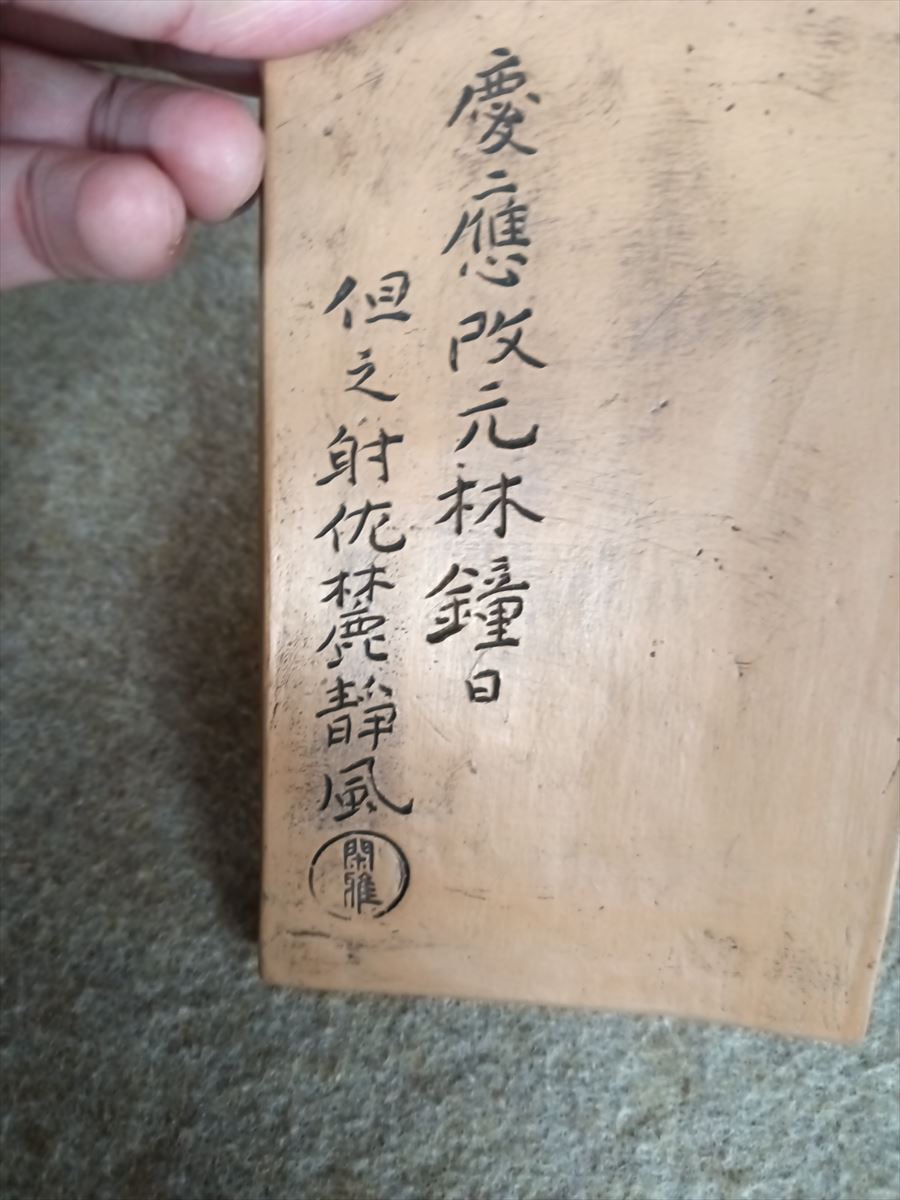 慶應改元林鐘日
但之射佐麓靜風
閑雅